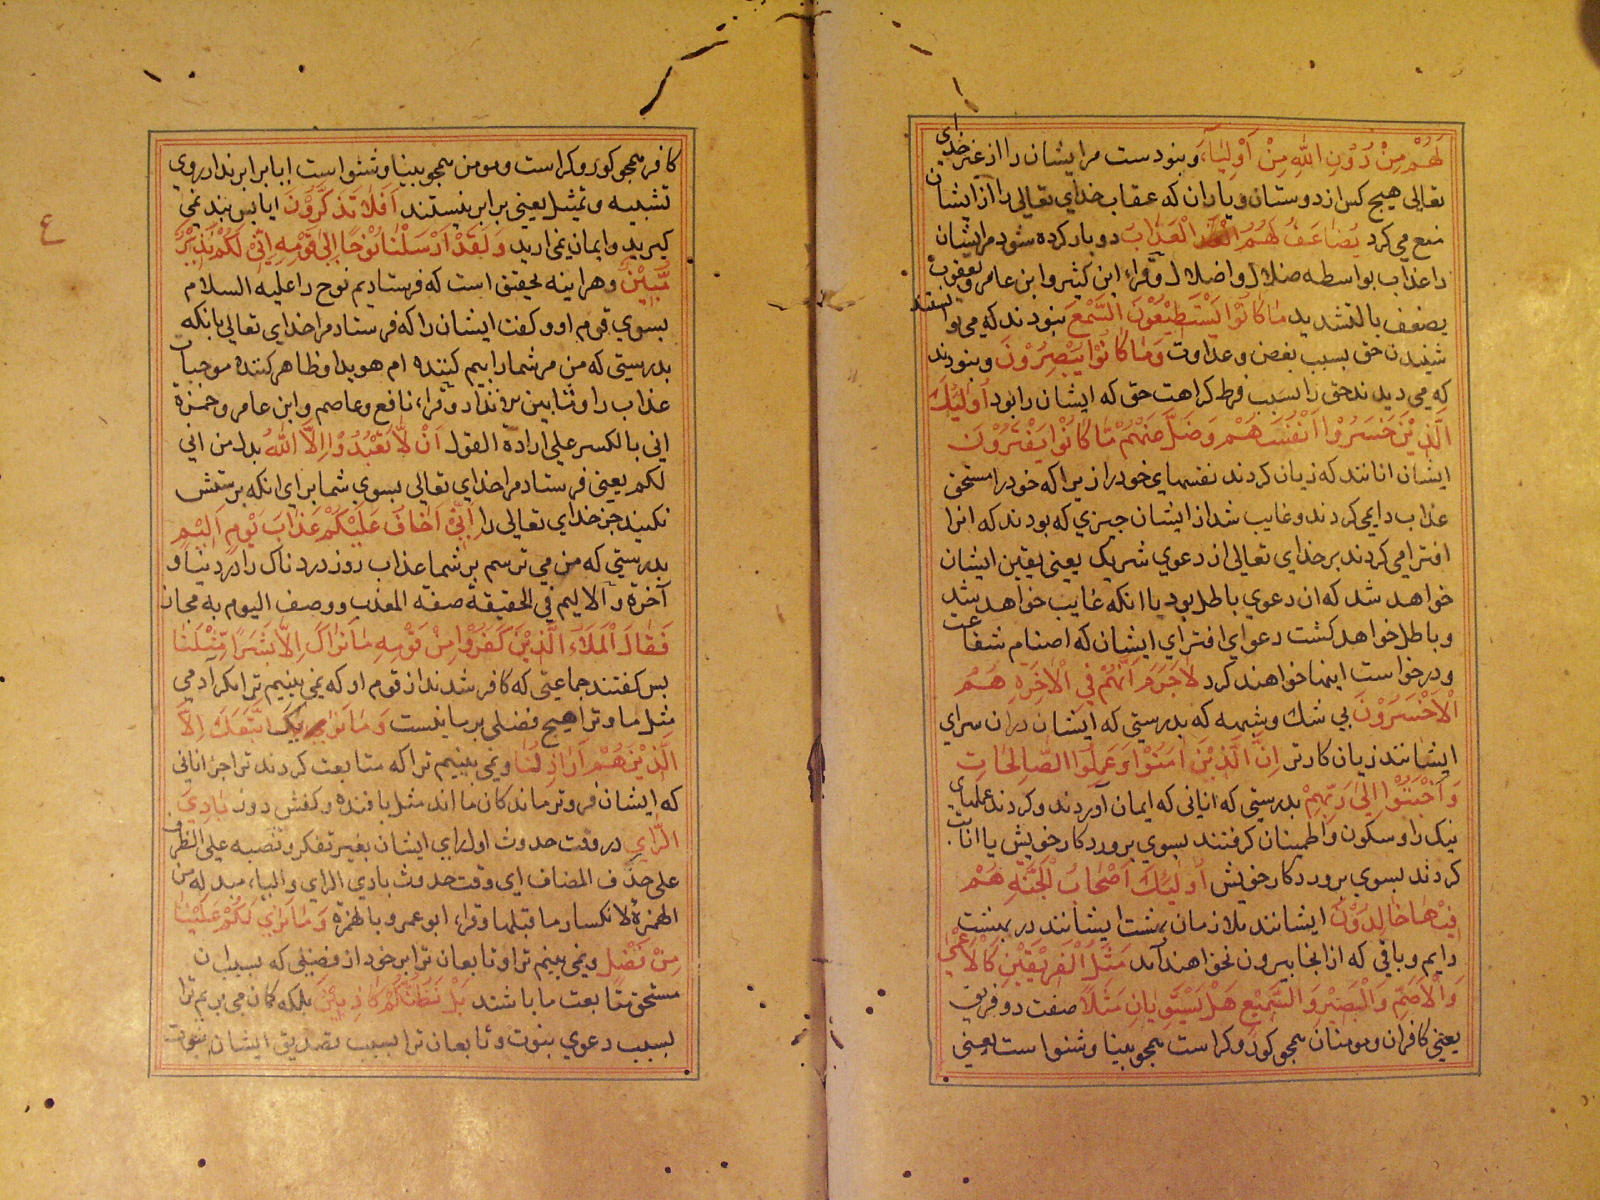 لَهُمْ مِنْ دُوْنِ اللّٰهِ مِنْ اَوْلِيَآءَ وبنودست مر ايشان را از غير خداي
تعالي هيچ كس از دوستان و ياران كه عقاب خداي تعالي را از ايشان
منع مي كرد يُضَاعَفُ لَهُمُ الْعَذَابُ دو بار كرده شود مر ايشان
را عذاب بواسطه ضلال و اضلال و قراء ابن كثير و ابن عامر و يعقوب
يضعف بالتشديد مَا كَانُوْا يَسْتَطِيْعُوْنَ السَّمْعَ بنودند كه مي توانستند
شنيدن حق بسبب بغض و عداوت وَمَا كَانُوْا يُبْصِرُوْنَ وبنودند
كه مي ديدند حق را بسبب فرط كراهت حق كه ايشان را بود اُولٰٓئِكَ
الَّذِيْنَ خَسِرُوْا اَنْفُسَهُمْ وَضَلَّ عَنْهُمْ مَّا كَانُوْا يَفْتَرُوْنَ
ايشان انانند كه زيان كردند نفسهاي خود را زيرا كه خود را مستحق
عذاب دايمي كردند و غايب شد از ايشان چيزي كه بودند كه انرا
افترا مي كردند بر خداي تعالي از دعوي شريك يعني يقين ايشان
خواهد شد كه ان دعوي باطل بود يا انكه غايب خواهد شد
و باطل خواهد كشت دعواي افتراي ايشان كه اصنام شفاعت
و درخواست اينها خواهند كرد لَا جَرَمَ اَنَّهُمْ فِي الْاٰخِرَةِ هُمُ
الْاَخْسَرُوْنَ بي شك و شبهه كه بدرستي كه ايشان در ان سراي
ايشانند زيان كارتر اِنَّ الَّذِيْنَ اٰمَنُوْا وَعَمِلُوا الصَّالِحَاتِ
وَاَخْبَتُوْا اِلٰى رَبِّهِمْ بدرستي كه اناني كه ايمان آوردند و كردند عملهاي
نيك را و سكون و اطمينان كرفتند بسوي پروردكار خويش يا انابت
كردند بسوي پروردكار خويش اُولٰٓئِكَ اَصْحَابُ الْجَنَّةِ هُمْ
فِيْهَا خَالِدُوْنَ ايشانند ملازمان بهشت ايشانند در بهشت
دايم و باقي كه از انجا بيرون نخواهند آمد مَثَلُ الْفَرِيْقَيْنِ كَالْاَعْمٰى
وَالْاَصَمِّ وَالْبَصِيْرِ وَالسَّمِيْعِ هَلْ يَسْتَوِيَانِ مَثَلًا صفت دو فريق
يعني كافران و مومنان همچو كور و كر است همچو بينا و شنواست يعني
كافر همچو كور و كر است و مومن همچو بينا و شنواست ايا برابراند از روي
تشبيه و تمثيل يعني برابر نيستند اَفَلَا تَذَكَّرُوْنَ ايا پس پند نمي
كيريد و ايمان نمي اريد وَلَقَدْ اَرْسَلْنَا نُوْحًا اِلٰى قَوْمِهٖ اِنِّيْ لَكُمْ نَذِيْرٌ
مُّبِيْنٌ و هراينه بحقيق است كه فرستاديم نوح را عليه السلام
بسوي قوم او و كفت ايشان را كه فرستاد مرا خداي تعالي بانكه
بدرستي كه من مر شما را بيم كننده ام هويدا و ظاهر كننده موجبات
عذاب را و نافع و عاصم و ابن عامر و حمزة
اني بالكسر علي ارادة القول اَنْ لَّا تَعْبُدُوْا اِلَّا اللّٰهَ بدل من اني
لكم يعني فرستاد مرا خداي تعالي بسوي شما براي انكه پرستش
نكنيد جز خداي تعالي را اِنِّيْٓ اَخَافُ عَلَيْكُمْ عَذَابَ يَوْمٍ اَلِيْمٍ
بدرستي كه من مي ترسم بر شما عذاب روز دردناك را در دنيا و
آخرة و الاليم في الحقيقة صفة المعذب و وصف اليوم به مجاز
فَقَالَ الْمَلَاُ الَّذِيْنَ كَفَرُوْا مِنْ قَوْمِهٖ مَا نَرَاكَ اِلَّا بَشَرًا مِّثْلَنَا
پس كفتند جماعتي كه كافر شدند از قوم او كه نمي بينيم ترا مكر آدمي
مثل ما و ترا هيچ فضلي بر ما نيست وَمَا نَرَاكَ اتَّبَعَكَ اِلَّا
الَّذِيْنَ هُمْ اَرَاذِلُنَا و نمي بينيم ترا كه متابعت كردند ترا جز اناني
كه ايشان فروتر ماندكان ما اند مثل بافنده و كفش دوز بَادِيَ
الرَّاْيِ در وقت حدوث اول راي ايشان بغير تفكر و نصبه علي الظرف
علي حذف المضاف اي وقت حدوث بادي الراي و اليا مبدله من
الهمزة لانكسار ما قبلها و قراء ابو عمرو بالهمزة وَمَا نَرٰى لَكُمْ عَلَيْنَا
مِنْ فَضْلٍ و نمي بينيم ترا و تابعان ترا بر خود از فضيلي كه بسبب ان
مستحق متابعت ما باشند بَلْ نَظُنُّكُمْ كَاذِبِيْنَ بلكه كمان مي بريم ترا
بسبب دعوي نبوت و تابعان ترا بسبب تصديق ايشان نبوت
٤